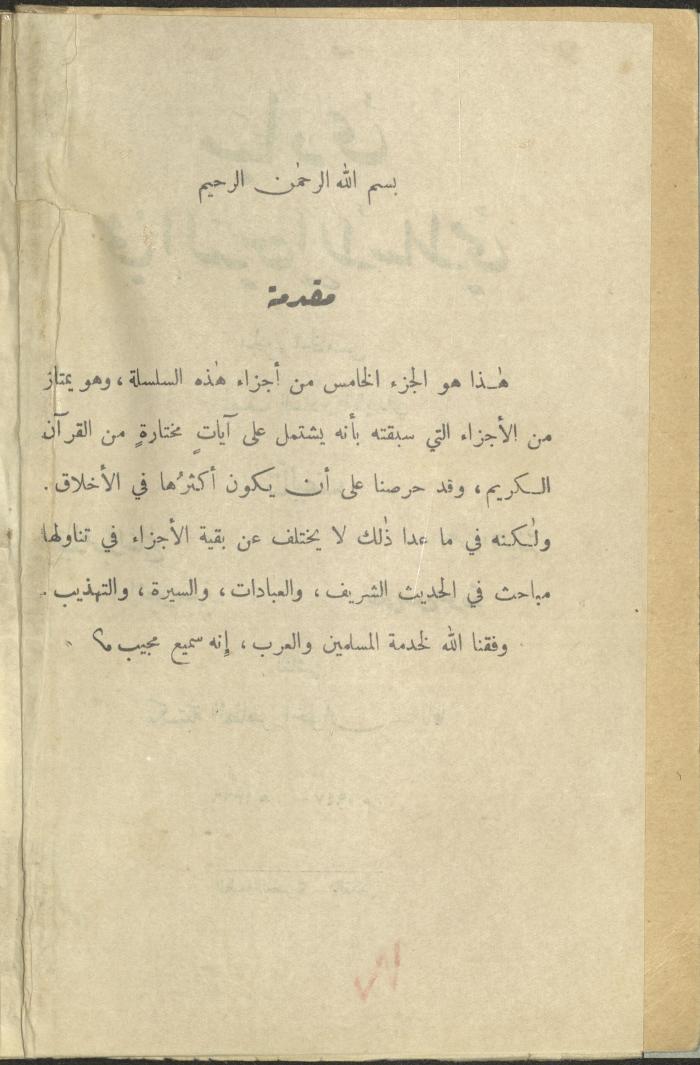 بسم الله الرحمٰن الرحيم
مقدمة
هٰذا هو الجزء الخامس من أجزاء هٰذه السلسلة ، وهو يمتاز
من الأجزاء التي سبقته بأنه يشتمل على آياتٍ مختارةٍ من القرآن
الكريم ، وقد حرصنا على أن يكون أكثرُها في الأخلاق .
ولٰكنه في ما عدا ذٰلك لا يختلف عن بقية الأجزاء في تناولها
مباحث في الحديث الشريف ، والعبادات ، والسيرة ، والتهذيب .
وفقنا الله لخدمة المسلمين والعرب ، إنه سميع مجيب